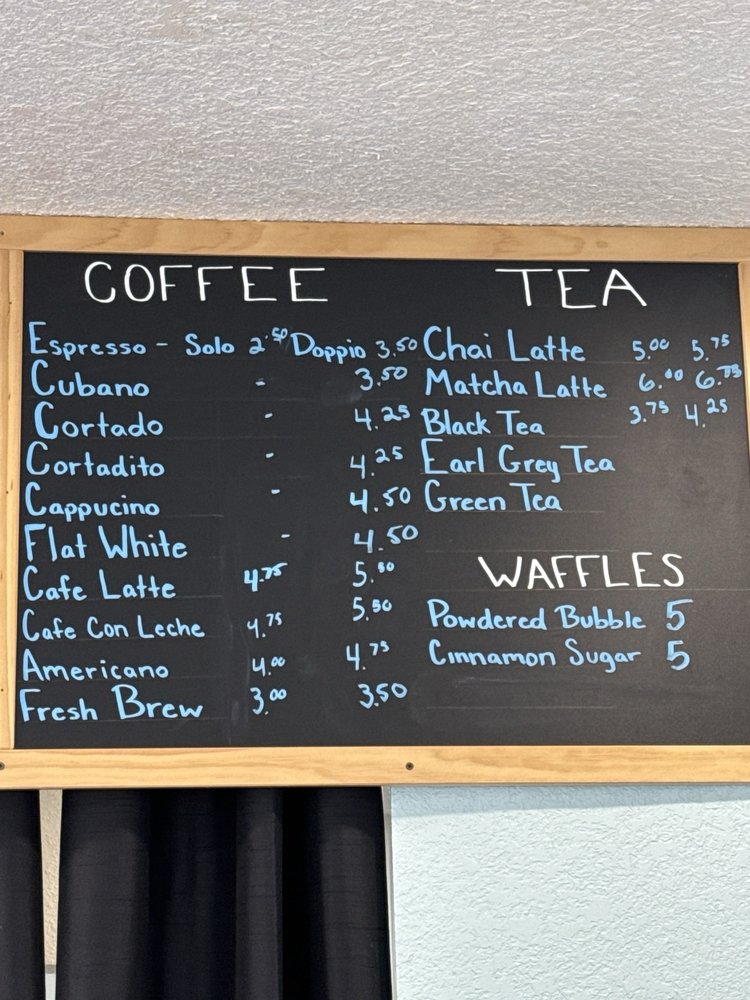 COFFEE
Espresso - Solo 2.50 Doppio 3.50
Cubano - 3.50
Cortado - 4.25
Cortadito - 4.25
Cappucino - 4.50
Flat White - 4.50
Cafe Latte 4.75 5.50
Cafe Con Leche 4.75 5.50
Americano 4.00 4.75
Fresh Brew 3.00 3.50
TEA
Chai Latte 5.00 5.75
Matcha Latte 6.00 6.75
Black Tea 3.75 4.25
Earl Grey Tea
Green Tea
WAFFLES
Powdered Bubble 5
Cinnamon Sugar 5